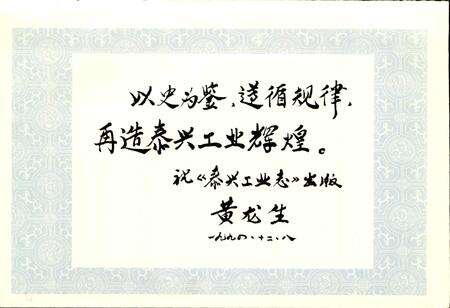 以史为鉴，遵循规律，
再造泰兴工业辉煌。
祝《泰兴工业志》出版
黄龙生
一九九〇、十二、八